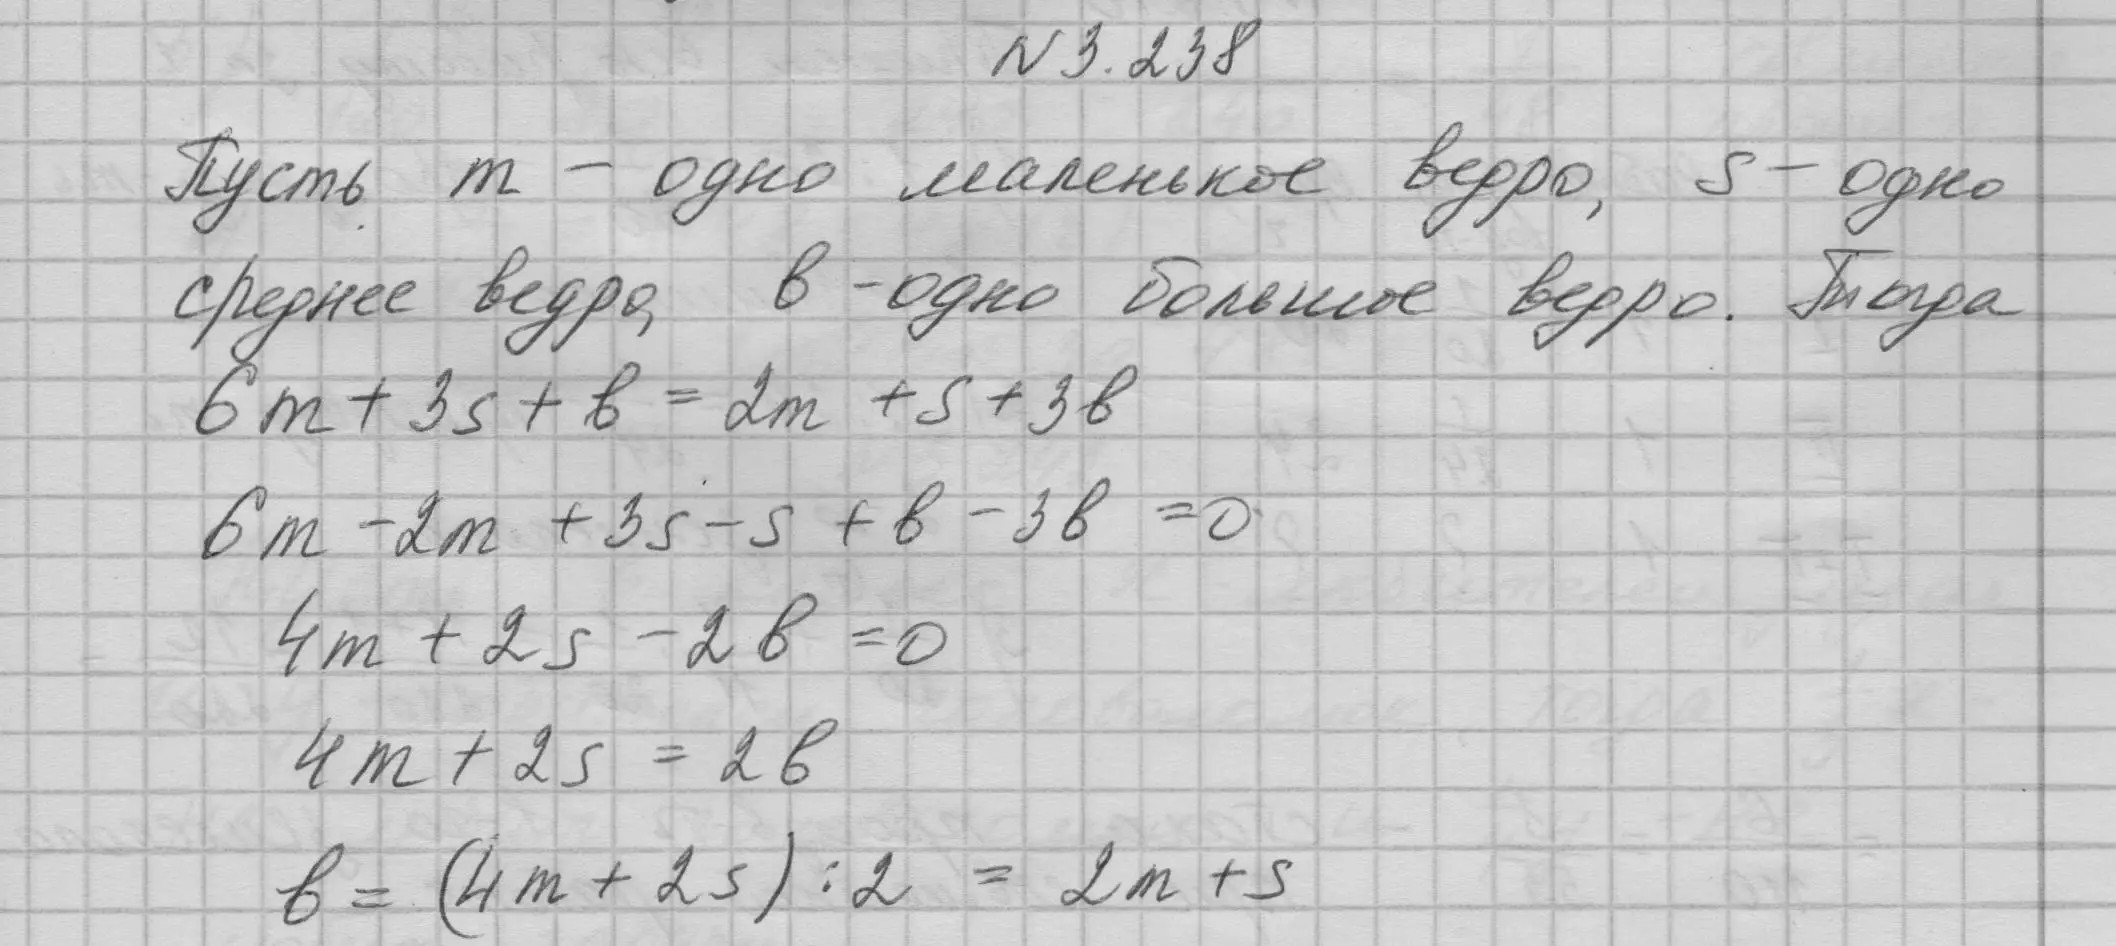 N 3.238
Пусть m - одно маленькое ведро, s - одно
среднее ведро, b - одно большое ведро. Тогда
6m + 3s + b = 2m + s + 3b
6m - 2m + 3s - s + b - 3b = 0
4m + 2s - 2b = 0
4m + 2s = 2b
b = (4m + 2s) : 2 = 2m + s